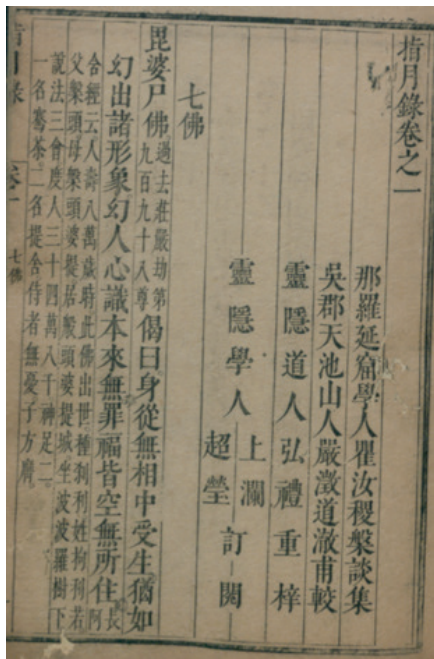 指月錄卷之一
那羅延窟學人瞿汝稷槃談集
吳郡天池山人嚴澂道澈甫較
靈隱道人弘禮重梓
靈隱學人上瀾超瑩訂閱
七佛
毘婆尸佛過去莊嚴劫第九百九十八尊偈曰身從無相中受生猶如
幻出諸形象幻人心識本來無罪福皆空無所住長阿
含經云人壽八萬歲時此佛出世種剎利姓拘利若
父槃頭母槃頭婆提居槃頭婆提城坐波波羅樹下
說法三會度人三十四萬八千神足二
一名騫荼二名提舍侍者無憂子方膺
指月錄 卷一 七佛